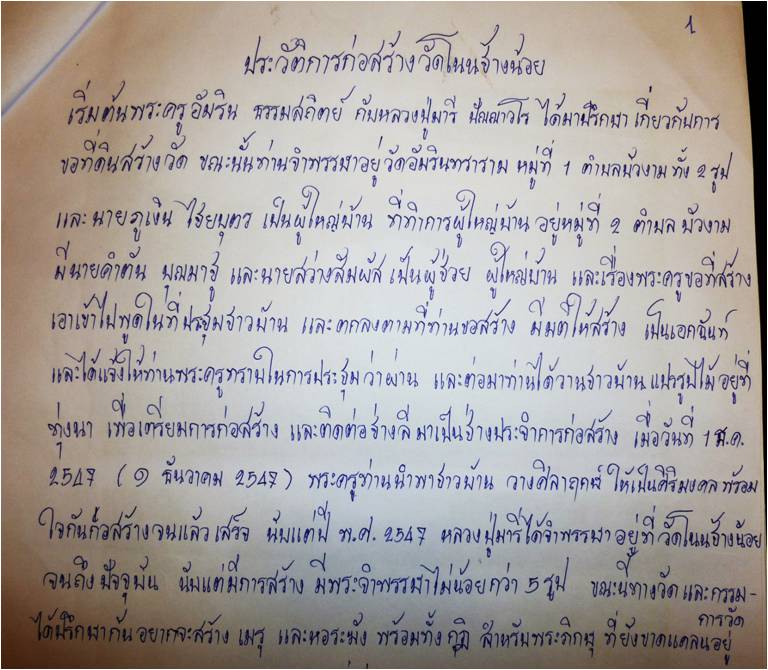 1
ประวัติการก่อสร้างวัดโนนช้างน้อย
เริ่มต้นพระครูอัมริน ธรรมสถิตย์ กับหลวงปู่มารี ปัญญาวโร ได้มาปรึกษา เกี่ยวกับการ
ขอที่ดินสร้างวัด ขณะนั้นท่านจำพรรษาอยู่วัดอัมรินทราราม หมู่ที่ 1 ตำบลบัวงาม ทั้ง 2 รูป
และนายภูเงิน ไชยบุตร เป็นผู้ใหญ่บ้าน ที่ทำการผู้ใหญ่บ้าน อยู่หมู่ที่ 2 ตำบล บัวงาม
มีนายคำตัน บุญมาชู และนายสว่างสัมผัส เป็นผู้ช่วย ผู้ใหญ่บ้าน และเรื่องพระครูขอที่สร้าง
เอาเข้าไปพูดในที่ประชุมชาวบ้าน และตกลงตามที่ท่านขอสร้าง มีมติให้สร้าง เป็นเอกฉันท์
และได้แจ้งให้ท่านพระครูทราบในการประชุมว่าผ่าน และต่อมาท่านได้วานชาวบ้าน แปรรูปไม้ อยู่ที่
ทุ่งนา เพื่อเตรียมการก่อสร้าง และติดต่อช่างลี มาเป็นช่างประจำการก่อสร้าง เมื่อวันที่ 1 ธ.ค.
2547 (๑ ธันวาคม 2547) พระครูท่านนำพาชาวบ้าน วางศิลาฤกษ์ ให้เป็นศิริมงคล พร้อม
ใจกันก่อสร้างจนแล้วเสร็จ นับแต่ปี พ.ศ. 2547 หลวงปู่มารีได้จำพรรษาอยู่ที่วัดโนนช้างน้อย
จนถึงปัจจุบัน นับแต่มีการสร้าง มีพระจำพรรษาไม่น้อยกว่า 5 รูป ขณะนี้ทางวัด และกรรม-
การวัด
ได้ปรึกษากันอยากจะสร้าง เมรุ และหอระฆัง พร้อมทั้ง กุฏิ สำหรับพระภิกษุ ที่ยังขาดแคลนอยู่